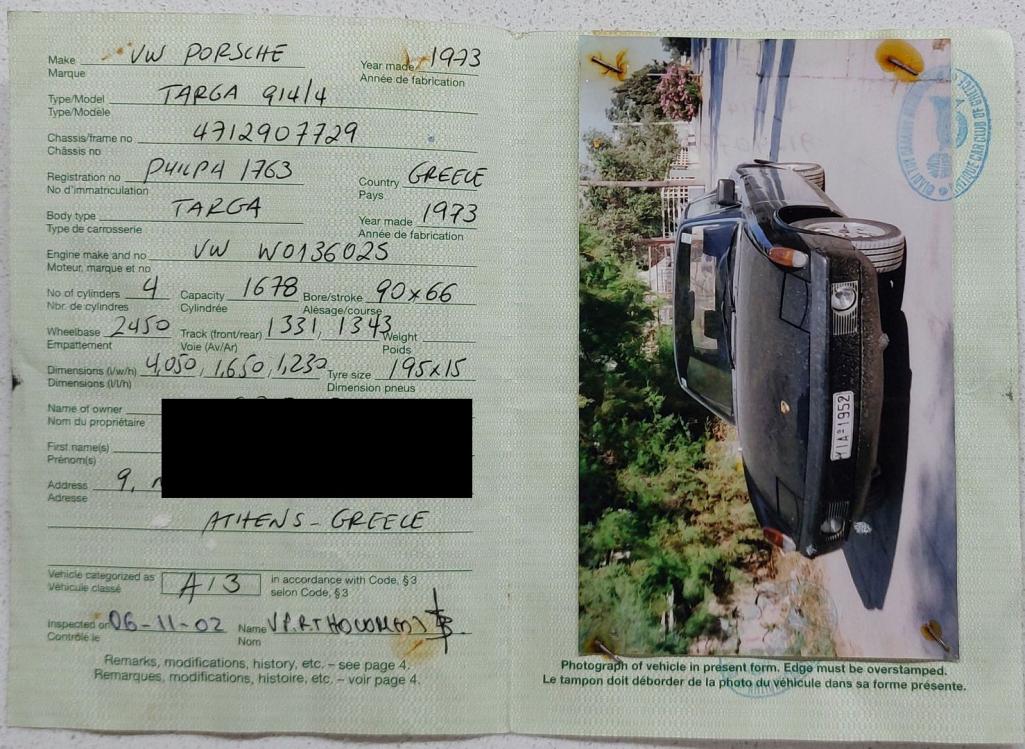 Make VW PORSCHE Year made 1973
Marque Année de fabrication
Type/Model TARGA 914/4
Type/Modèle
Chassis/frame no 4712907729
Châssis no
Registration no 1763 Country GREECE
No d'immatriculation Pays
Body type TARGA Year made 1973
Type de carrosserie Année de fabrication
Engine make and no VW W0136025
Moteur, marque et no
No of cylinders 4 Capacity 1678 Bore/stroke 90x66
Nbr. de cylindres Cylindrée Alésage/course
Wheelbase 2450 Track (front/rear) 1331, 1343 Weight
Empattement Voie (Av/Ar) Poids
Dimensions (l/w/h) 4,050, 1,650, 1,230 Tyre size 195x15
Dimensions (l/l/h) Dimension pneus
Name of owner
Nom du propriétaire
First name(s)
Prénom(s)
Address 9,
Adresse
ATHENS - GREECE
Vehicle categorized as A/3 in accordance with Code, §3
Véhicule classé selon Code, §3
Inspected on 06-11-02 Name
Contrôlé le Nom
Remarks, modifications, history, etc. – see page 4.
Remarques, modifications, histoire, etc. – voir page 4.
YIA-1952
Photograph of vehicle in present form. Edge must be overstamped.
Le tampon doit déborder de la photo du véhicule dans sa forme présente.